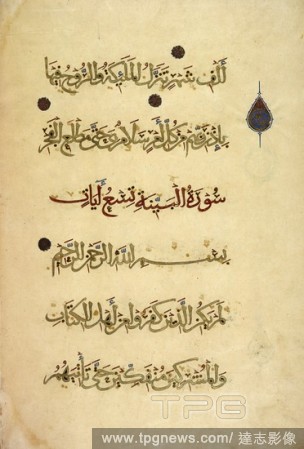 ألف شهر تنزل الملئكة والروح فيها
بإذن ربهم من كل أمر سلام هي حتى مطلع الفجر
سورة البينة تسع آيات
بسم الله الرحمن الرحيم
لم يكن الذين كفروا من أهل الكتاب
والمشركين منفكين حتى تأتيهم
TPG
www.tpgnews.com/達志影像